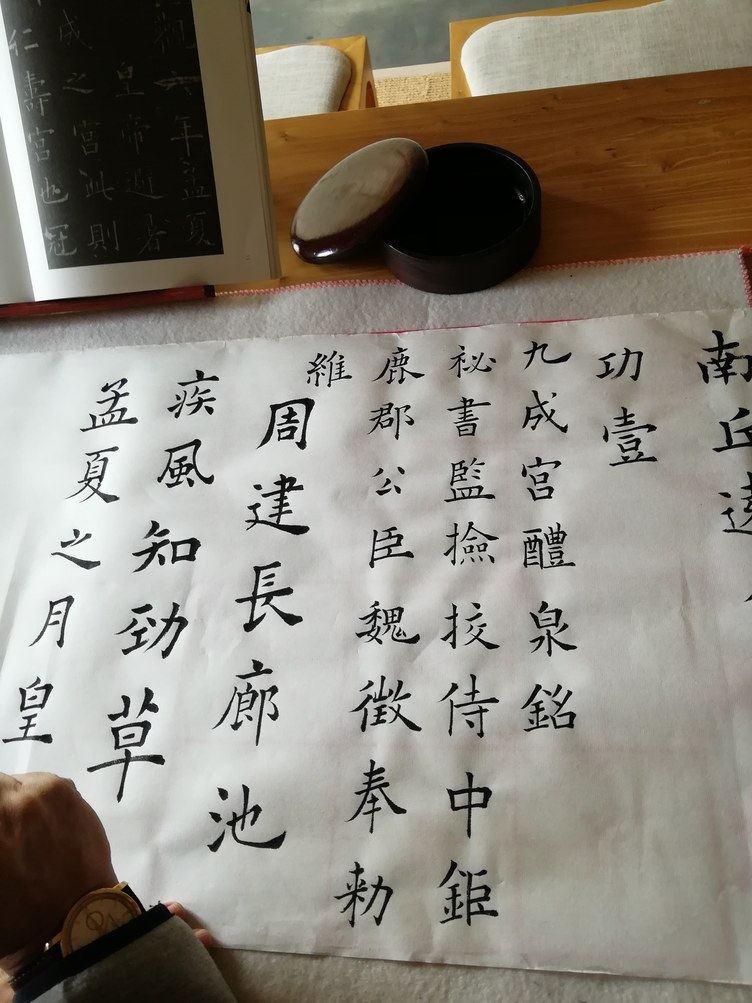 南丘遠
功壹
九成宮醴泉銘
祕書監撿挍侍中鉅
鹿郡公臣魏徵奉勅
維
周建長廊池
疾風知勁草
孟夏之月皇
觀六年孟夏
皇帝避暑
成之宮此則
仁壽宮也冠